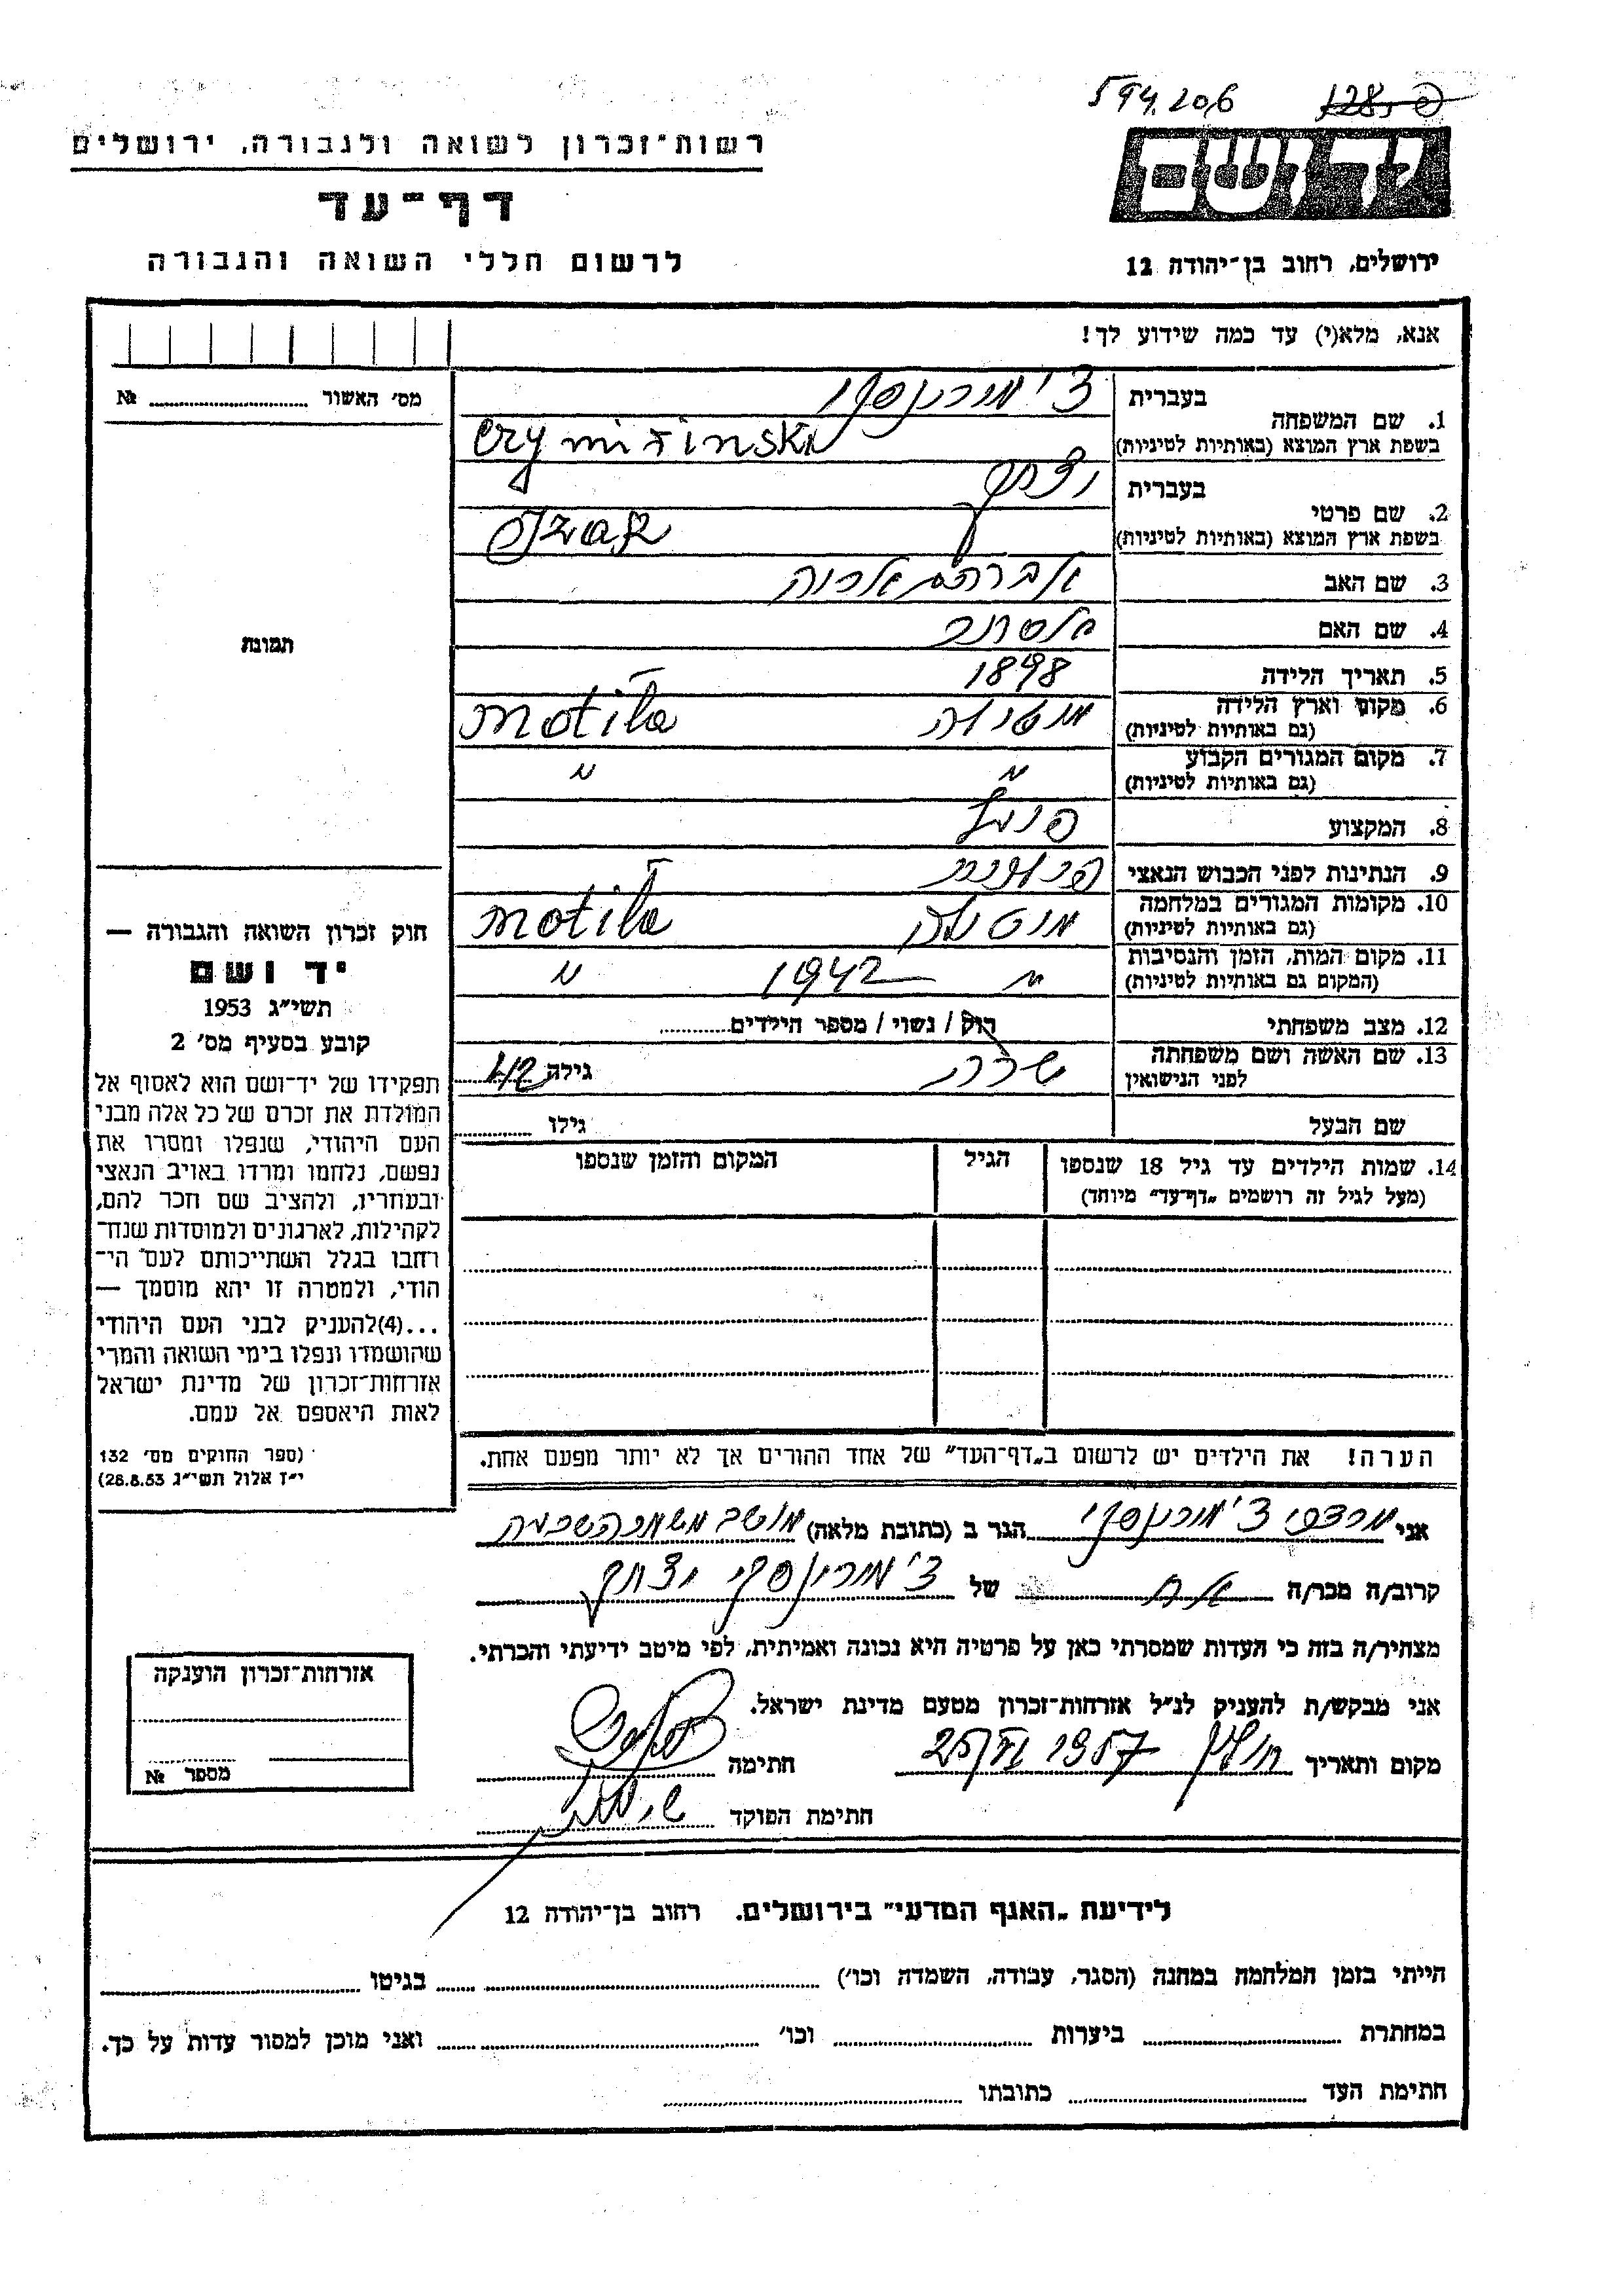 594.206
רשות־זכרון לשואה ולגבורה, ירושלים
דף־עד
לרשום חללי השואה והגבורה
יד ושם
ירושלים, רחוב בן־יהודה 12
אנא, מלא(י) עד כמה שידוע לך!
מס׳ האשור № ..........
1. שם המשפחה
בעברית צ׳ימרינסקי
בשפת ארץ המוצא (באותיות לטיניות)
2. שם פרטי
בעברית יצחק
בשפת ארץ המוצא (באותיות לטיניות) Izak
3. שם האב אברהם
4. שם האם
5. תאריך הלידה 1898
6. מקום וארץ הלידה
(גם באותיות לטיניות) מוטילה motila
7. מקום המגורים הקבוע
(גם באותיות לטיניות) " "
8. המקצוע
9. הנתינות לפני הכבוש הנאצי
10. מקומות המגורים במלחמה
(גם באותיות לטיניות) מוטילה motila
11. מקום המות, הזמן והנסיבות
(המקום גם באותיות לטיניות) " 1942 "
12. מצב משפחתי רוק / נשוי / מספר הילדים..........
13. שם האשה ושם משפחתה
לפני הנישואין שרה גילה 42
שם הבעל גילו ..........
14. שמות הילדים עד גיל 18 שנספו
(מעל לגיל זה רושמים „דף־עד" מיוחד)
הגיל
המקום והזמן שנספו
הערה! את הילדים יש לרשום ב„דף־העד" של אחד ההורים אך לא יותר מפעם אחת.
תמונת
חוק זכרון השואה והגבורה —
יד ושם
תשי״ג 1953
קובע בסעיף מס׳ 2
תפקידו של יד־ושם הוא לאסוף אל
המולדת את זכרם של כל אלה מבני
העם היהודי, שנפלו ומסרו את
נפשם, נלחמו ומרדו באויב הנאצי
ובעוזריו, ולהציב שם וזכר להם,
לקהילות, לארגונים ולמוסדות שנח־
רחבו בגלל השתייכותם לעם הי־
הודי, ולמטרה זו יהא מוסמך —
...(4)להעניק לבני העם היהודי
שהושמדו ונפלו בימי השואה והמרי
אזרחות־זכרון של מדינת ישראל
לאות היאספם אל עמם.
(ספר החוקים מס׳ 132
י״ז אלול תשי״ג 28.8.53)
אני מרדכי צ׳ימרינסקי הגר ב (כתובת מלאה) מושב
קרוב/ה מכר/ה אח של צ׳ימרינסקי יצחק
מצהיר/ה בזה כי העדות שמסרתי כאן על פרטיה היא נכונה ואמיתית, לפי מיטב ידיעתי והכרתי.
אני מבקש/ת להעניק לנ״ל אזרחות־זכרון מטעם מדינת ישראל.
מקום ותאריך 1957 חתימה
חתימת הפוקד
אזרחות־זכרון הוענקה
מספר №
לידיעת „האגף המדעי" בירושלים. רחוב בן־יהודה 12
הייתי בזמן המלחמה במחנה (הסגר, עבודה, השמדה וכו׳) .......... בגיטו ..........
במחתרת .......... ביערות .......... וכו׳ .......... ואני מוכן למסור עדות על כך.
חתימת העד .......... כתובתו ..........